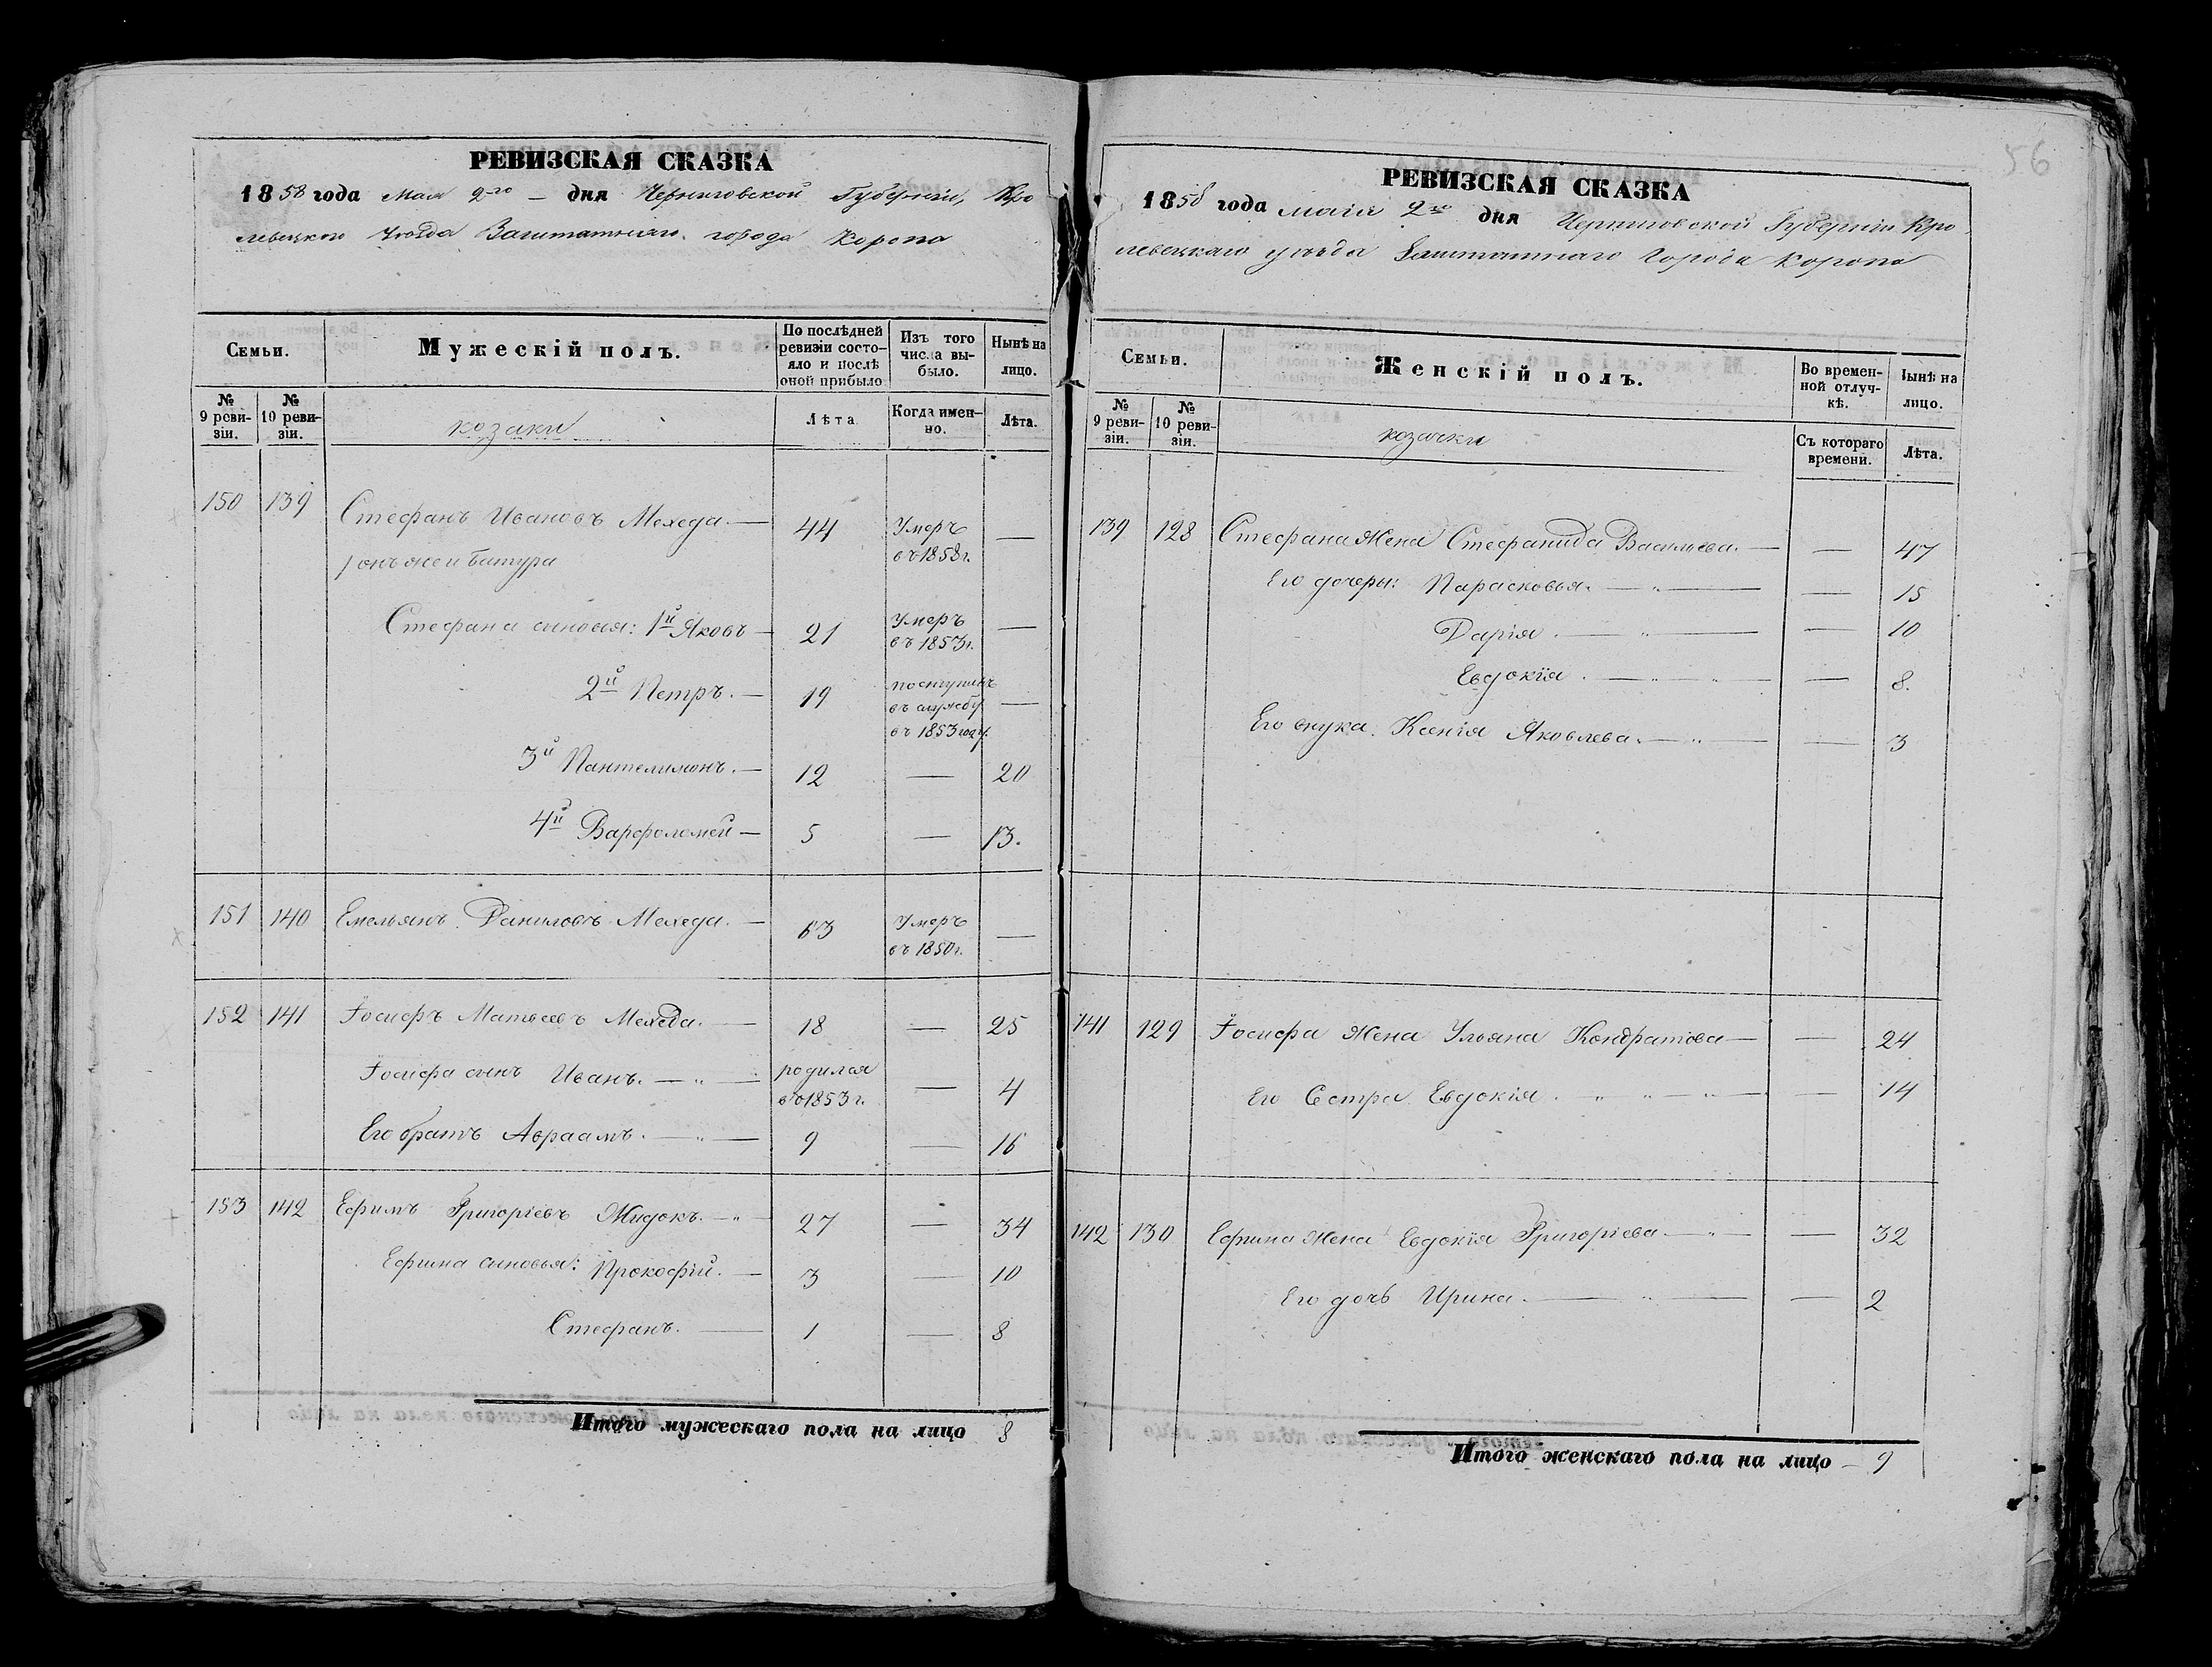 56
РЕВИЗСКАЯ СКАЗКА
1858 года Мая 2го — дня Черниговской Губерніи, Кро
левецкого Уѣзда Заштатнаго города Коропа
Семьи.
Мужескій полъ.
По послѣдней ревизіи состояло и послѣ оной прибыло
Изъ того числа выбыло.
Нынѣ на лицо.
№ 9 ревизіи.
№ 10 ревизіи.
козаки
Лѣта
Когда именно.
Лѣта.
150 139 Стефанъ Ивановъ Мехеда. — 44 Умеръ въ 1858г. —
онъ же и Батура
Стефана сыновья: 1й Яковъ — 21 Умеръ въ 1853г. —
2й Петръ. — 19 поступилъ въ службу въ 1853 году. —
3й Пантелимонъ. — 12 — 20
4й Варфоломей — 5 — 13.
151 140 Емельянъ Даниловъ Мехеда. — 63 Умеръ въ 1850г. —
152 141 Іосифъ Матвеевъ Мехеда. — 18 — 25
Іосифа сынъ Иванъ. — „ — родился въ 1853г. — 4
Его братъ Авраамъ. — „ — 9 — 16
153 142 Ефимъ Григоріевъ Жидокъ. — „ 27 — 34
Ефима сыновья: Прокофій. — 3 — 10
Стефанъ. — 1 — 8
Итого мужескаго пола на лицо 8
РЕВИЗСКАЯ СКАЗКА
1858 года маія 2го дня Черниговской Губерніи Кро
левецкаго уѣзда Заштатнаго Города Коропа
Семьи.
Женскій полъ.
Во временной отлучкѣ.
Нынѣ на лицо.
№ 9 ревизіи.
№ 10 ревизіи.
козачки
Съ котораго времени.
Лѣта.
139 128 Стефана Жена Стефанида Васильева. — — 47
Его дочеры: Парасковья. — „ — — 15
Дарія. — „ — — 10
Евдокія. — „ — „ — 8.
Его внука. Ксенія Яковлева. — „ — — 3
141 129 Іосифа Жена Ульяна Кондратова — — 24
Его Сестра Евдокія. „ „ — „ — — 14
142 130 Ефима Жена Евдокія Григоріева — „ — — 32
Его дочь Ирина. — „ — — 2
Итого женскаго пола на лицо — 9